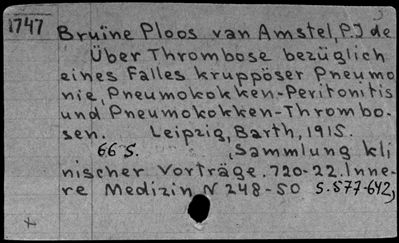 1747
Bruïne Ploos van Amstel, P.J de
Über Thrombose bezüglich
eines Falles kruppöser Pneumo
nie, Pneumokokken-Peritonitis
und Pneumokokken-Thrombo-
sen. Leipzig, Barth, 1915.
66 S. , Sammlung kli
nischer Vorträge. 720-22. Inne-
re Medizin N 248-50 S. 577-642,